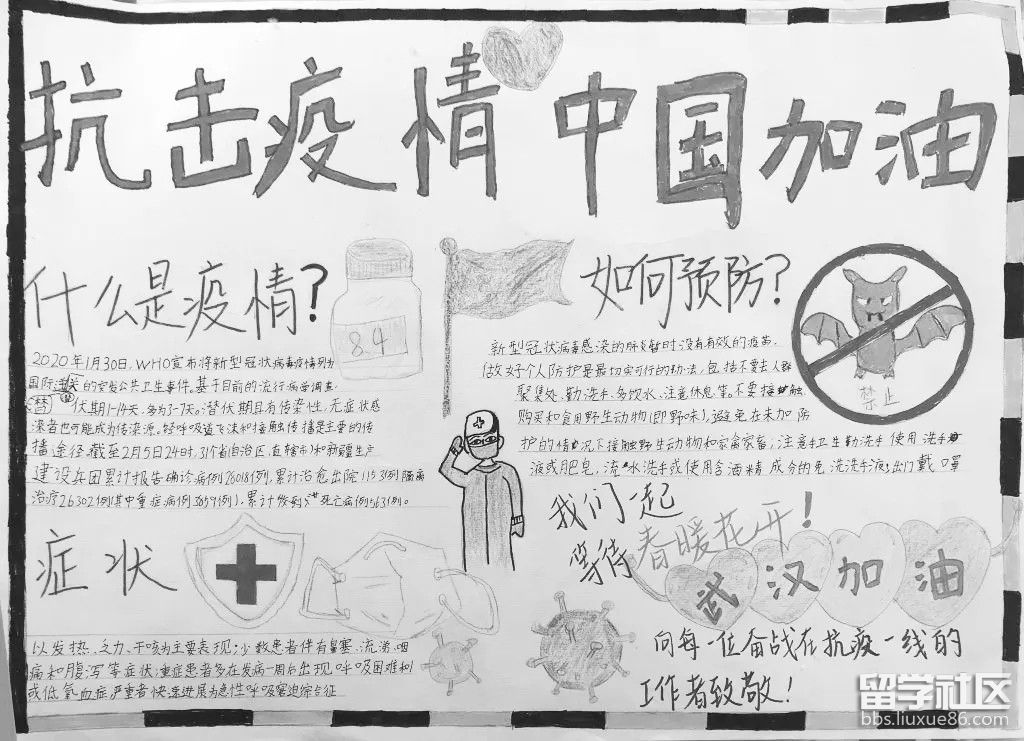 抗击疫情 中国加油
什么是疫情?
8.4
2020年1月30日,WHO宣布将新型冠状病毒疫情列为
国际关的突发公共卫生事件。基于目前的流行病学调查,
潜伏期1-14天,多为3-7天。潜伏期具有传染性,无症状感
染者也可能成为传染源。经呼吸道飞沫和接触传播是主要的传
播途径。截至2月5日24时,31个省(自治区、直辖市)和新疆生产
建设兵团累计报告确诊病例28018例,累计治愈出院1153例,隔离
治疗26302例(其中重症病例3859例),累计死亡病例563例。
症状
以发热、乏力、干咳为主要表现;少数患者伴有鼻塞、流涕、咽
痛和腹泻等症状;重症患者多在发病一周后出现呼吸困难和/
或低氧血症,严重者快速进展为急性呼吸窘迫综合征
如何预防?
新型冠状病毒感染的肺炎暂时没有有效的疫苗。
做好个人防护是最切实可行的办法,包括不要去人群
聚集处、勤洗手、多饮水、注意休息等。不要接触、
购买和食用野生动物(即野味),避免在未加防
护的情况下接触野生动物和家禽家畜;注意手卫生勤洗手使用洗手
液或肥皂,流水洗手或使用含酒精成分的免洗洗手液;出门戴口罩
禁止
我们一起
等待春暖花开!
武汉加油
向每一位奋战在抗疫一线的
工作者致敬!
留学社区
bbs.liuxue86.com